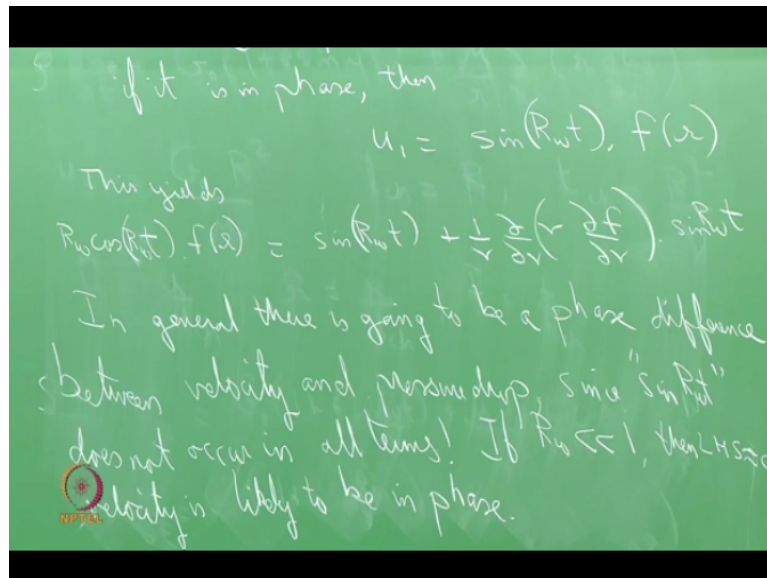 if it is in phase, then
u₁ = sin(Rωt). f(r)
This yields
Rω cos(Rωt). f(r) = sin(Rωt) + 1/r ∂/∂r (r ∂f/∂r). sin Rωt
In general there is going to be a phase difference
between velocity and pressure drop, since "sin Rωt"
does not occur in all terms! If Rω << 1, then LHS ≈ 0
velocity is likely to be in phase.
NPTEL